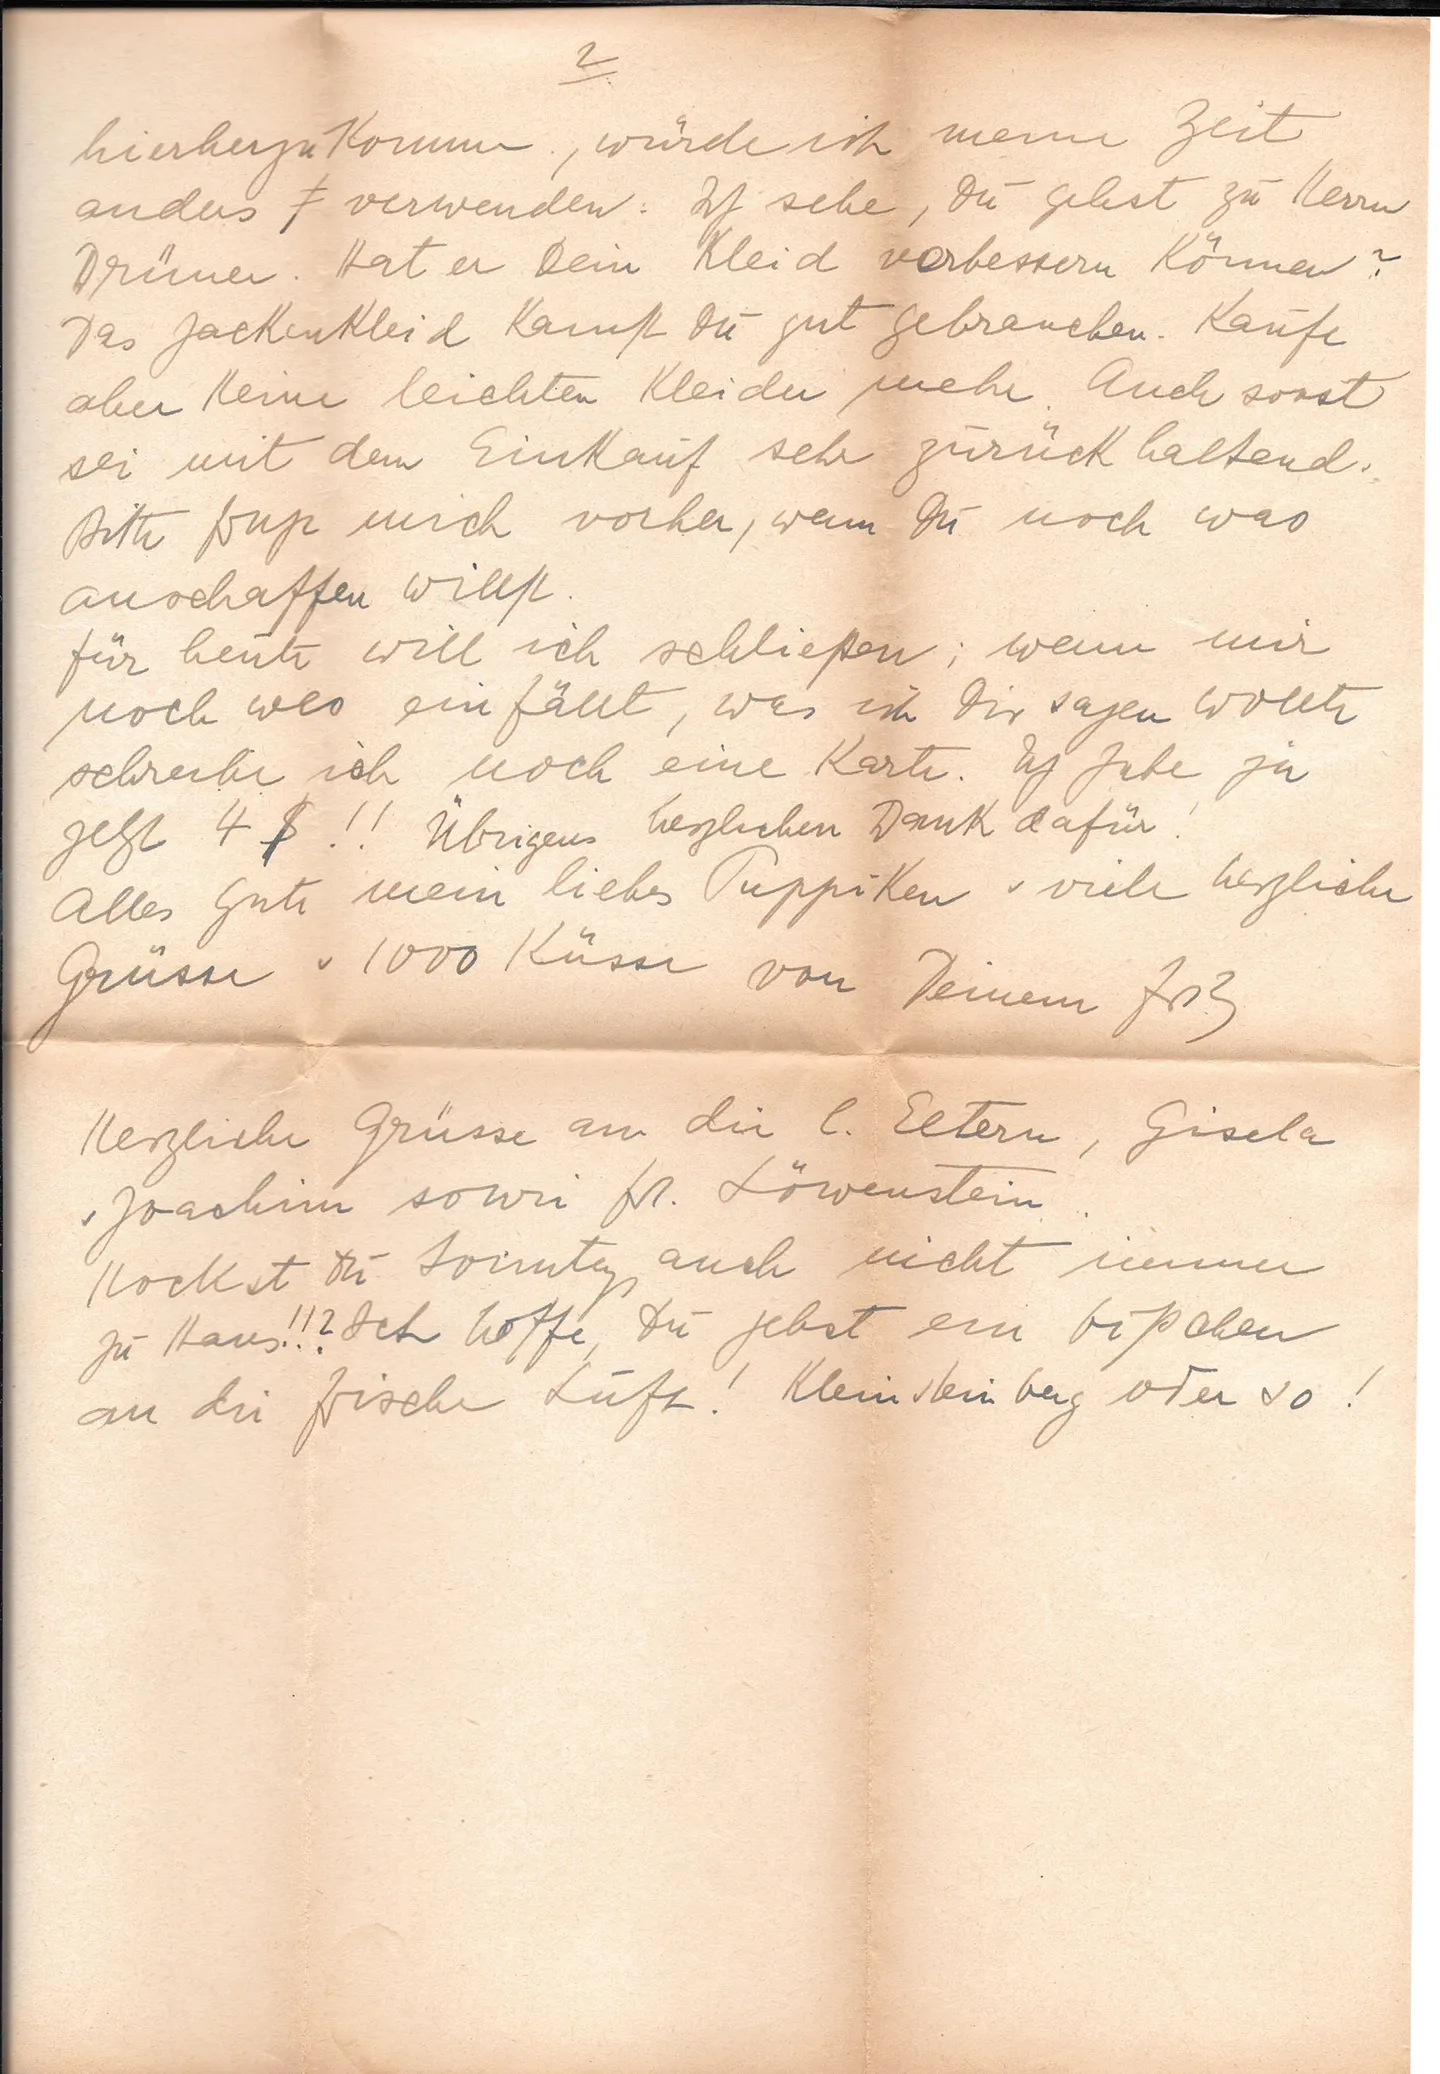 2
hierherzukommen, würde ich meine Zeit
anders verwenden. Ich sehe, Du gehst zu Herrn
Drüner. Hat er Dein Kleid verbessern können?
Das Jackenkleid kannst Du gut gebrauchen. Kaufe
aber keine leichten Kleider mehr. Auch sonst
sei mit dem Einkauf sehr zurückhaltend.
Bitte frage mich vorher, wenn Du noch was
anschaffen willst.
Für heute will ich schließen; wenn mir
noch was einfällt, was ich Dir sagen wollte
schreibe ich noch eine Karte. Ich habe ja
jetzt 4 $!! Übrigens herzlichen Dank dafür!
Alles Gute mein liebes Puppiken u viele herzliche
Grüsse u 1000 Küsse von Deinem
Herzliche Grüsse an die l. Eltern, Gisela
u Joachim sowie Fr. Löwenstein.
Hockst Du Sonntags auch nicht immer
zu Haus!!? Ich hoffe, Du gehst ein bißchen
an die frische Luft! Kleinsteinberg oder so!